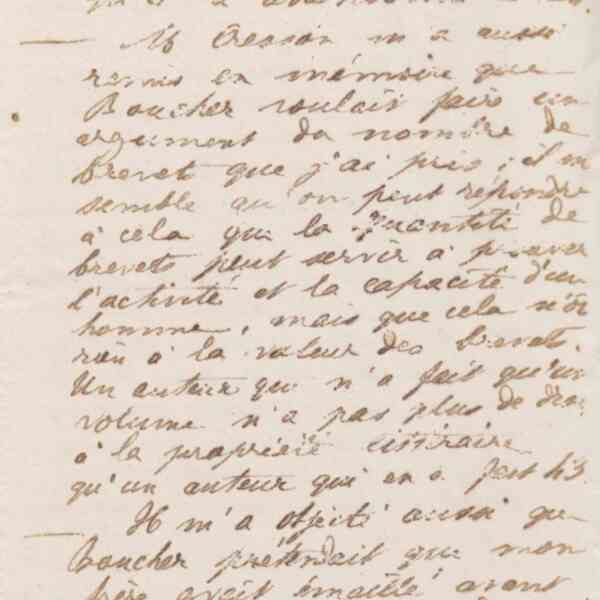 — M Cresson m'a aussi
remis en mémoire que
Boucher voulait faire un
argument du nombre de
brevet que j'ai pris ; il m
semble qu'on peut répondre
à cela que la quantité de
brevets peut servir à prouver
l'activité et la capacité d'un
homme, mais que cela n'ôte
rien à la valeur des brevets.
Un auteur qui n'a fait qu'un
volume n'a pas plus de droit
à la propriété littéraire
qu'un auteur qui en a fait 43.
Il m'a objecté aussi que
— Boucher prétendait que mon
frère avait émaillé avant